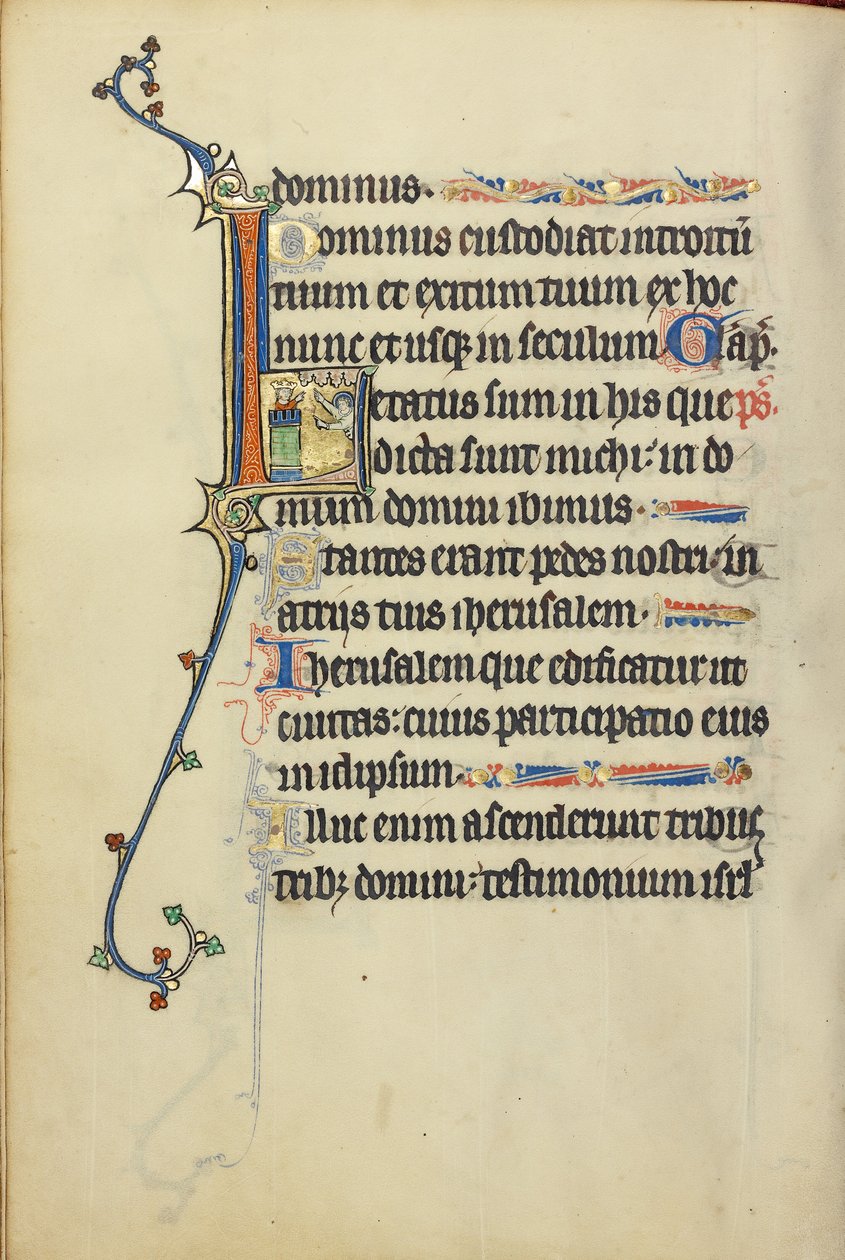 dominus.
Dominus custodiat introitū
tuum et exitum tuum ex hoc
nunc et usqꝫ in seculum G̃a p̃.
Letatus sum in his que p̃s.
dicta sunt michi: in do
mum domini ibimus
Stantes erant pedes nostri: in
atriis tuis iherusalem.
Iherusalem que edificatur ut
ciuitas: cuius participatio eius
in idipsum.
Illuc enim ascenderunt tribus
tribꝫ domini: testimonium isrl̃